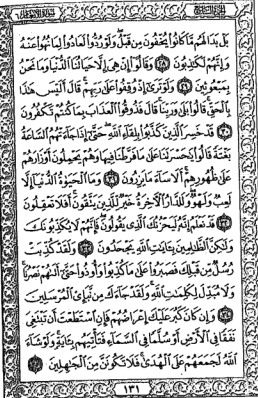 الجزء السابع
سورة الأنعام
بَلْ بَدَا لَهُم مَّا كَانُوا۟ يُخْفُونَ مِن قَبْلُ ۖ وَلَوْ رُدُّوا۟ لَعَادُوا۟ لِمَا نُهُوا۟ عَنْهُ
وَإِنَّهُمْ لَكَٰذِبُونَ ٢٨ وَقَالُوٓا۟ إِنْ هِىَ إِلَّا حَيَاتُنَا ٱلدُّنْيَا وَمَا نَحْنُ
بِمَبْعُوثِينَ ٢٩ وَلَوْ تَرَىٰٓ إِذْ وُقِفُوا۟ عَلَىٰ رَبِّهِمْ ۚ قَالَ أَلَيْسَ هَٰذَا
بِٱلْحَقِّ ۚ قَالُوا۟ بَلَىٰ وَرَبِّنَا ۚ قَالَ فَذُوقُوا۟ ٱلْعَذَابَ بِمَا كُنتُمْ تَكْفُرُونَ
٣٠ قَدْ خَسِرَ ٱلَّذِينَ كَذَّبُوا۟ بِلِقَآءِ ٱللَّهِ ۖ حَتَّىٰٓ إِذَا جَآءَتْهُمُ ٱلسَّاعَةُ
بَغْتَةً قَالُوا۟ يَٰحَسْرَتَنَا عَلَىٰ مَا فَرَّطْنَا فِيهَا وَهُمْ يَحْمِلُونَ أَوْزَارَهُمْ
عَلَىٰ ظُهُورِهِمْ ۚ أَلَا سَآءَ مَا يَزِرُونَ ٣١ وَمَا ٱلْحَيَوٰةُ ٱلدُّنْيَآ إِلَّا
لَعِبٌ وَلَهْوٌ ۖ وَلَلدَّارُ ٱلْءَاخِرَةُ خَيْرٌ لِّلَّذِينَ يَتَّقُونَ ۗ أَفَلَا تَعْقِلُونَ
٣٢ قَدْ نَعْلَمُ إِنَّهُۥ لَيَحْزُنُكَ ٱلَّذِى يَقُولُونَ ۖ فَإِنَّهُمْ لَا يُكَذِّبُونَكَ
وَلَٰكِنَّ ٱلظَّٰلِمِينَ بِـَٔايَٰتِ ٱللَّهِ يَجْحَدُونَ ٣٣ وَلَقَدْ كُذِّبَتْ
رُسُلٌ مِّن قَبْلِكَ فَصَبَرُوا۟ عَلَىٰ مَا كُذِّبُوا۟ وَأُوذُوا۟ حَتَّىٰٓ أَتَىٰهُمْ نَصْرُنَا ۚ
وَلَا مُبَدِّلَ لِكَلِمَٰتِ ٱللَّهِ ۚ وَلَقَدْ جَآءَكَ مِن نَّبَإِى۟ ٱلْمُرْسَلِينَ
٣٤ وَإِن كَانَ كَبُرَ عَلَيْكَ إِعْرَاضُهُمْ فَإِنِ ٱسْتَطَعْتَ أَن تَبْتَغِىَ
نَفَقًا فِى ٱلْأَرْضِ أَوْ سُلَّمًا فِى ٱلسَّمَآءِ فَتَأْتِيَهُم بِـَٔايَةٍ ۚ وَلَوْ شَآءَ
ٱللَّهُ لَجَمَعَهُمْ عَلَى ٱلْهُدَىٰ ۚ فَلَا تَكُونَنَّ مِنَ ٱلْجَٰهِلِينَ ٣٥
١٣١